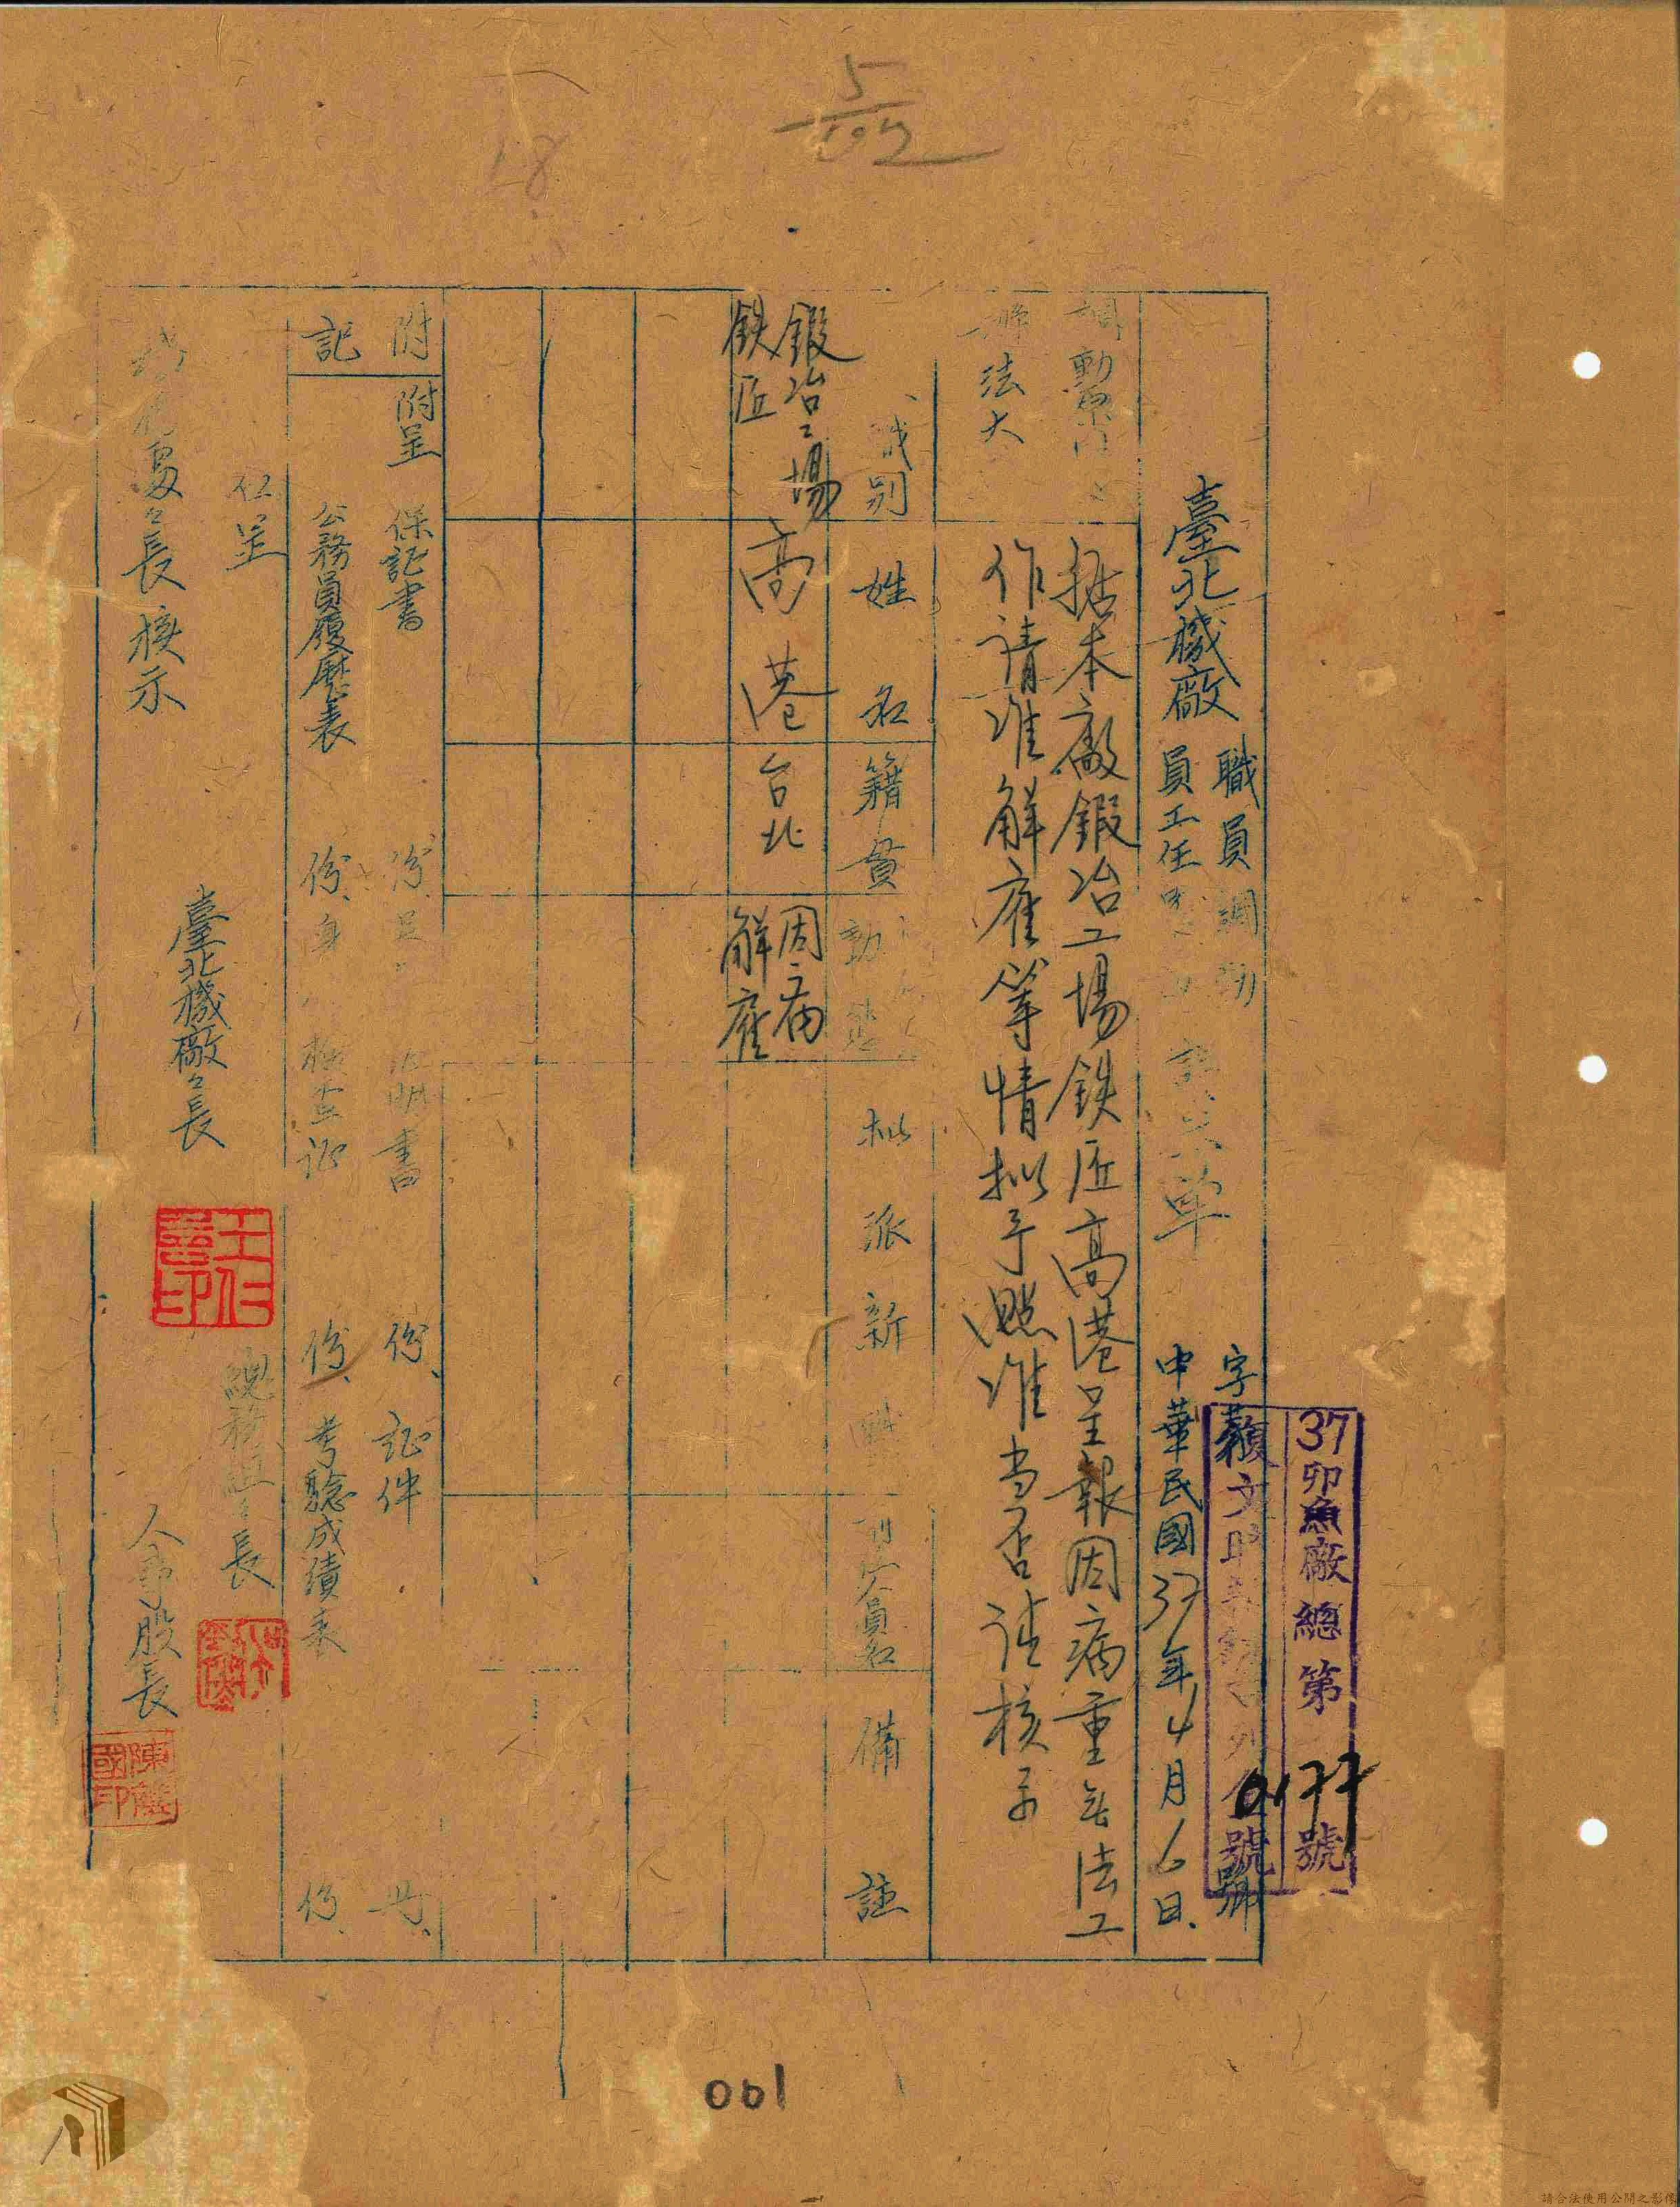 37卯魚廠總第0177號
字第號
臺北機廠
職員調動
員工任
單
中華民國37年4月6日
調動原因
辦法
據本廠鍛冶工場鉄匠高港呈報因病重無法工
作請准解雇等情拟予照准当否请核示
職別
姓名
籍貫
動態
拟派新職
備註
鍛冶工場
鉄匠
高港
台北
因病
解雇
附記
附呈
保証書
份
証明書
份、証件
公務員履歷表
份、身
檢查証
份、考驗成績表
份、
仅呈
處々長核示
臺北機廠々長
總務組々長
人事股長
陳
國印
001
5
107
18
請合法使用公開之影像